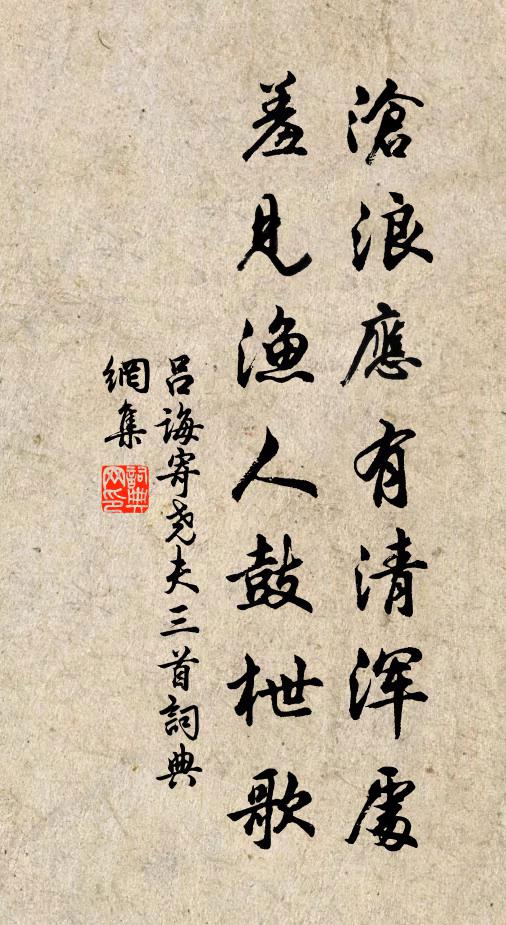 滄浪應有清渾處
羞見漁人鼓枻歌
呂誨寄堯夫三首詞典
網集
詞典
網印